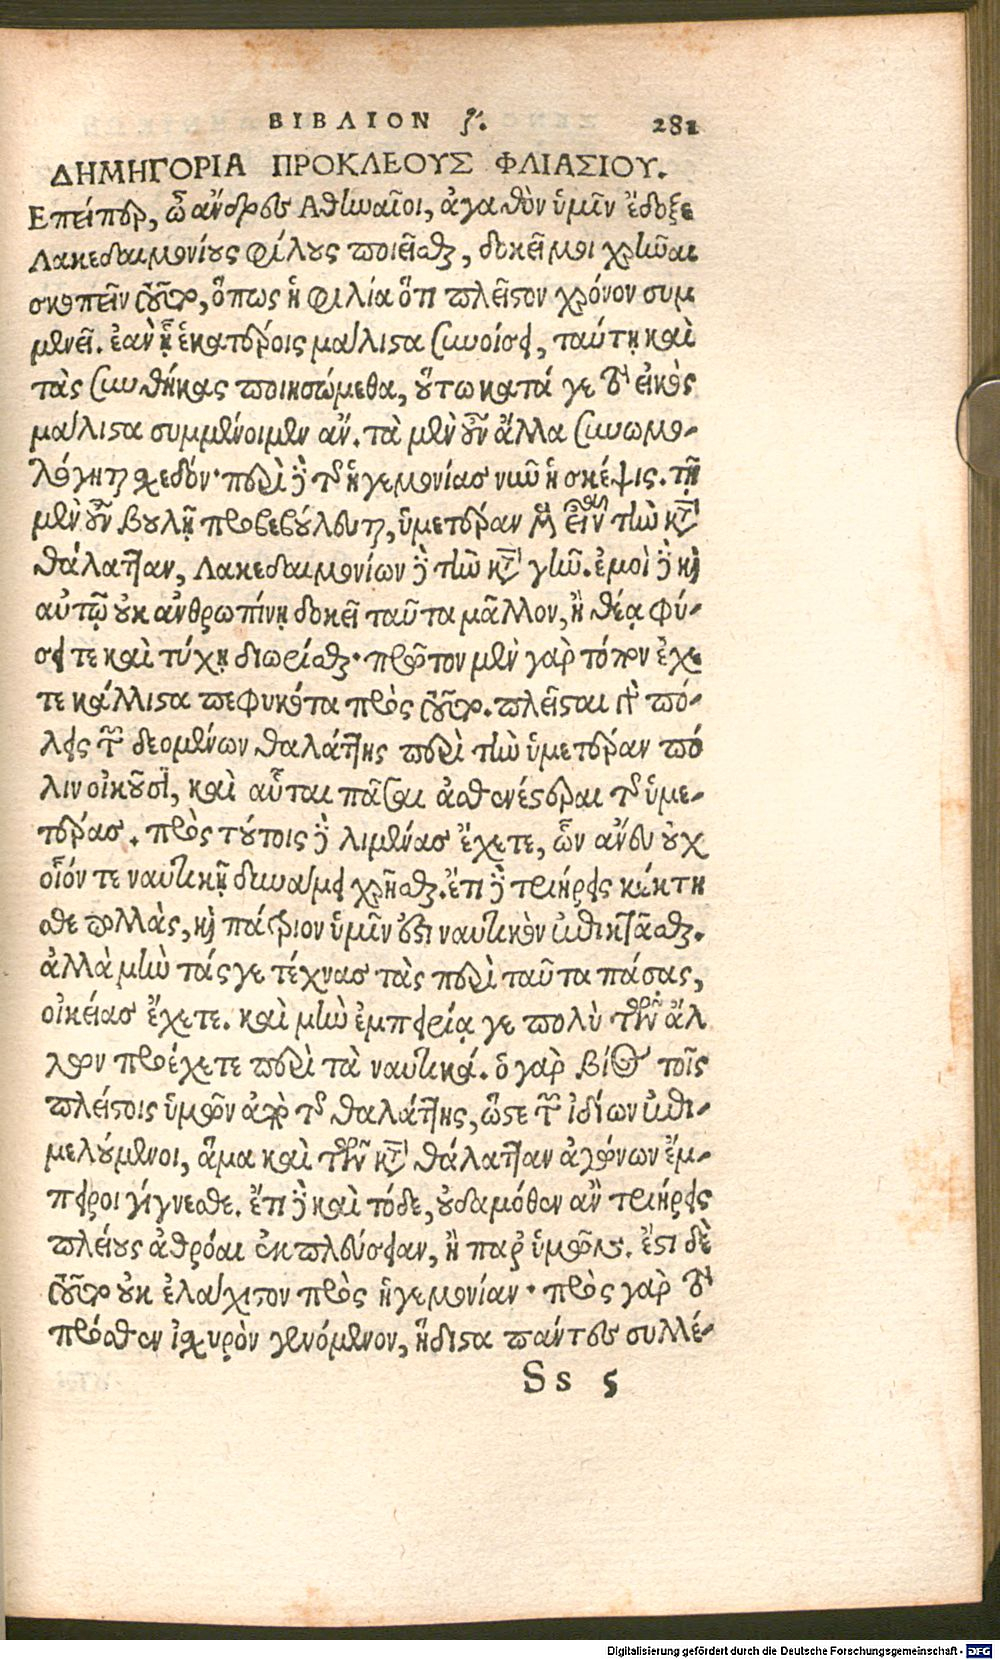 ΒΙΒΛΙΟΝ ϛ΄. 281
ΔΗΜΗΓΟΡΙΑ ΠΡΟΚΛΕΟΥΣ ΦΛΙΑΣΙΟΥ.
Επείπερ, ὦ ἄνδρες Αθηναῖοι, ἀγαθὸν ὑμῖν ἔδοξε
Λακεδαιμονίους φίλους ποιεῖσθαι, δοκεῖ μοι χρῆναι
σκοπεῖν τοῦτο, ὅπως ἡ φιλία ὅτι πλεῖστον χρόνον συμ
μενεῖ. ἐὰν ᾗ ἑκατέροις μάλιστα συνοίσει, ταύτῃ καὶ
τὰς συνθήκας ποιησώμεθα, οὕτω κατά γε τὸ εἰκὸς
μάλιστα συμμένοιμεν ἄν. τὰ μὲν οὖν ἄλλα συνωμο-
λόγηται σχεδόν· περὶ δὲ τῆς ἡγεμονίας νῦν ἡ σκέψις. τῇ
μὲν οὖν βουλῇ προβεβούλευται, ὑμετέραν μὲν εἶναι τὴν κατὰ
θάλατταν, Λακεδαιμονίων δὲ τὴν κατὰ γῆν. ἐμοὶ δὲ καὶ
αὐτῷ οὐκ ἀνθρωπίνῃ δοκεῖ ταῦτα μᾶλλον, ἢ θείᾳ φύ-
σει τε καὶ τύχῃ διωρίσθαι· πρῶτον μὲν γὰρ τόπον ἔχε
τε κάλλιστα πεφυκότα πρὸς τοῦτο. πλεῖσται γὰρ πό-
λεις τῶν δεομένων θαλάττης περὶ τὴν ὑμετέραν πό
λιν οἰκοῦσι, καὶ αὗται πᾶσαι ἀσθενέστεραι τῆς ὑμε-
τέρας. πρὸς τούτοις δὲ λιμένας ἔχετε, ὧν ἄνευ οὐχ
οἷόν τε ναυτικῇ δυνάμει χρῆσθαι. ἔτι δὲ τριήρεις κέκτη
σθε πολλὰς, καὶ πάτριον ὑμῖν ἐστι ναυτικὸν ἐπικτᾶσθαι.
ἀλλὰ μὴν τάς γε τέχνας τὰς περὶ ταῦτα πάσας,
οἰκείας ἔχετε. καὶ μὴν ἐμπειρίᾳ γε πολὺ τῶν ἄλ
λων προέχετε περὶ τὰ ναυτικά. ὁ γὰρ βίος τοῖς
πλείστοις ὑμῶν ἀπὸ τῆς θαλάττης, ὥστε τῶν ἰδίων ἐπι-
μελούμενοι, ἅμα καὶ τῶν κατὰ θάλατταν ἀγώνων ἔμ-
πειροι γίγνεσθε. ἔτι δὲ καὶ τόδε, οὐδαμόθεν ἂν τριήρεις
πλείους ἀθρόαι ἐκπλεύσειαν, ἢ παρ' ὑμῶν. ἔστι δὲ
τοῦτο οὐκ ἐλάχιστον πρὸς ἡγεμονίαν· πρὸς γὰρ τὸ
πρόσθεν ἰσχυρὸν γενόμενον, ἥδιστα πάντες συλλέ-
Ss 5
Digitalisierung gefördert durch die Deutsche Forschungsgemeinschaft - DFG